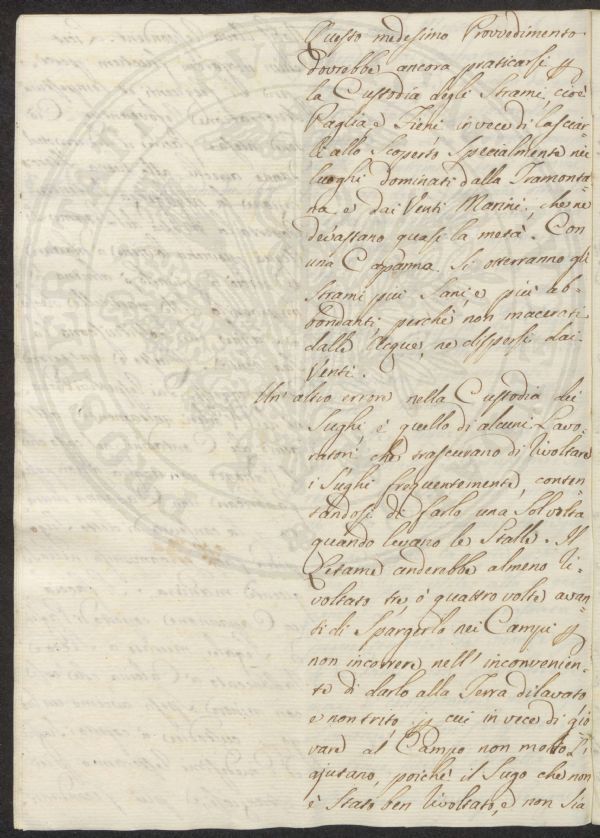 Questo medesimo Provvedimento
dovrebbe ancora praticarsi p
la Custodia degli Strami, cioè
Paglia e Fieni in vece di lasciar-
li allo Scoperto Specialmente nei
luoghi dominati dalla Tramonta-
na, e dai Venti Marini, che ne
devastano quasi la metà. Con
una Capanna si otterranno gli
Strami più Sani, e più ab-
bondanti, perchè non macerati
dalle Acque, ne dispersi dai
Venti.
Un'altro errore nella Custodia dei
Sughi, è quello di alcuni Lavo-
ratori che trascurano di rivoltare
i Sughi frequentemente, conten-
tandosi di farlo una Sol volta
quando levano le Stalle. Il
Letame anderebbe almeno ri-
voltato tre, ò quattro volte avan-
ti di Spargerlo nei Campi p
non incorrere nell'inconvenien-
te di darlo alla Terra dilavato
e non trito, p cui in vece di gio-
vare al Campo non molto l'
ajutano, poichè il Sugo che non
è Stato ben rivoltato, e non Sia